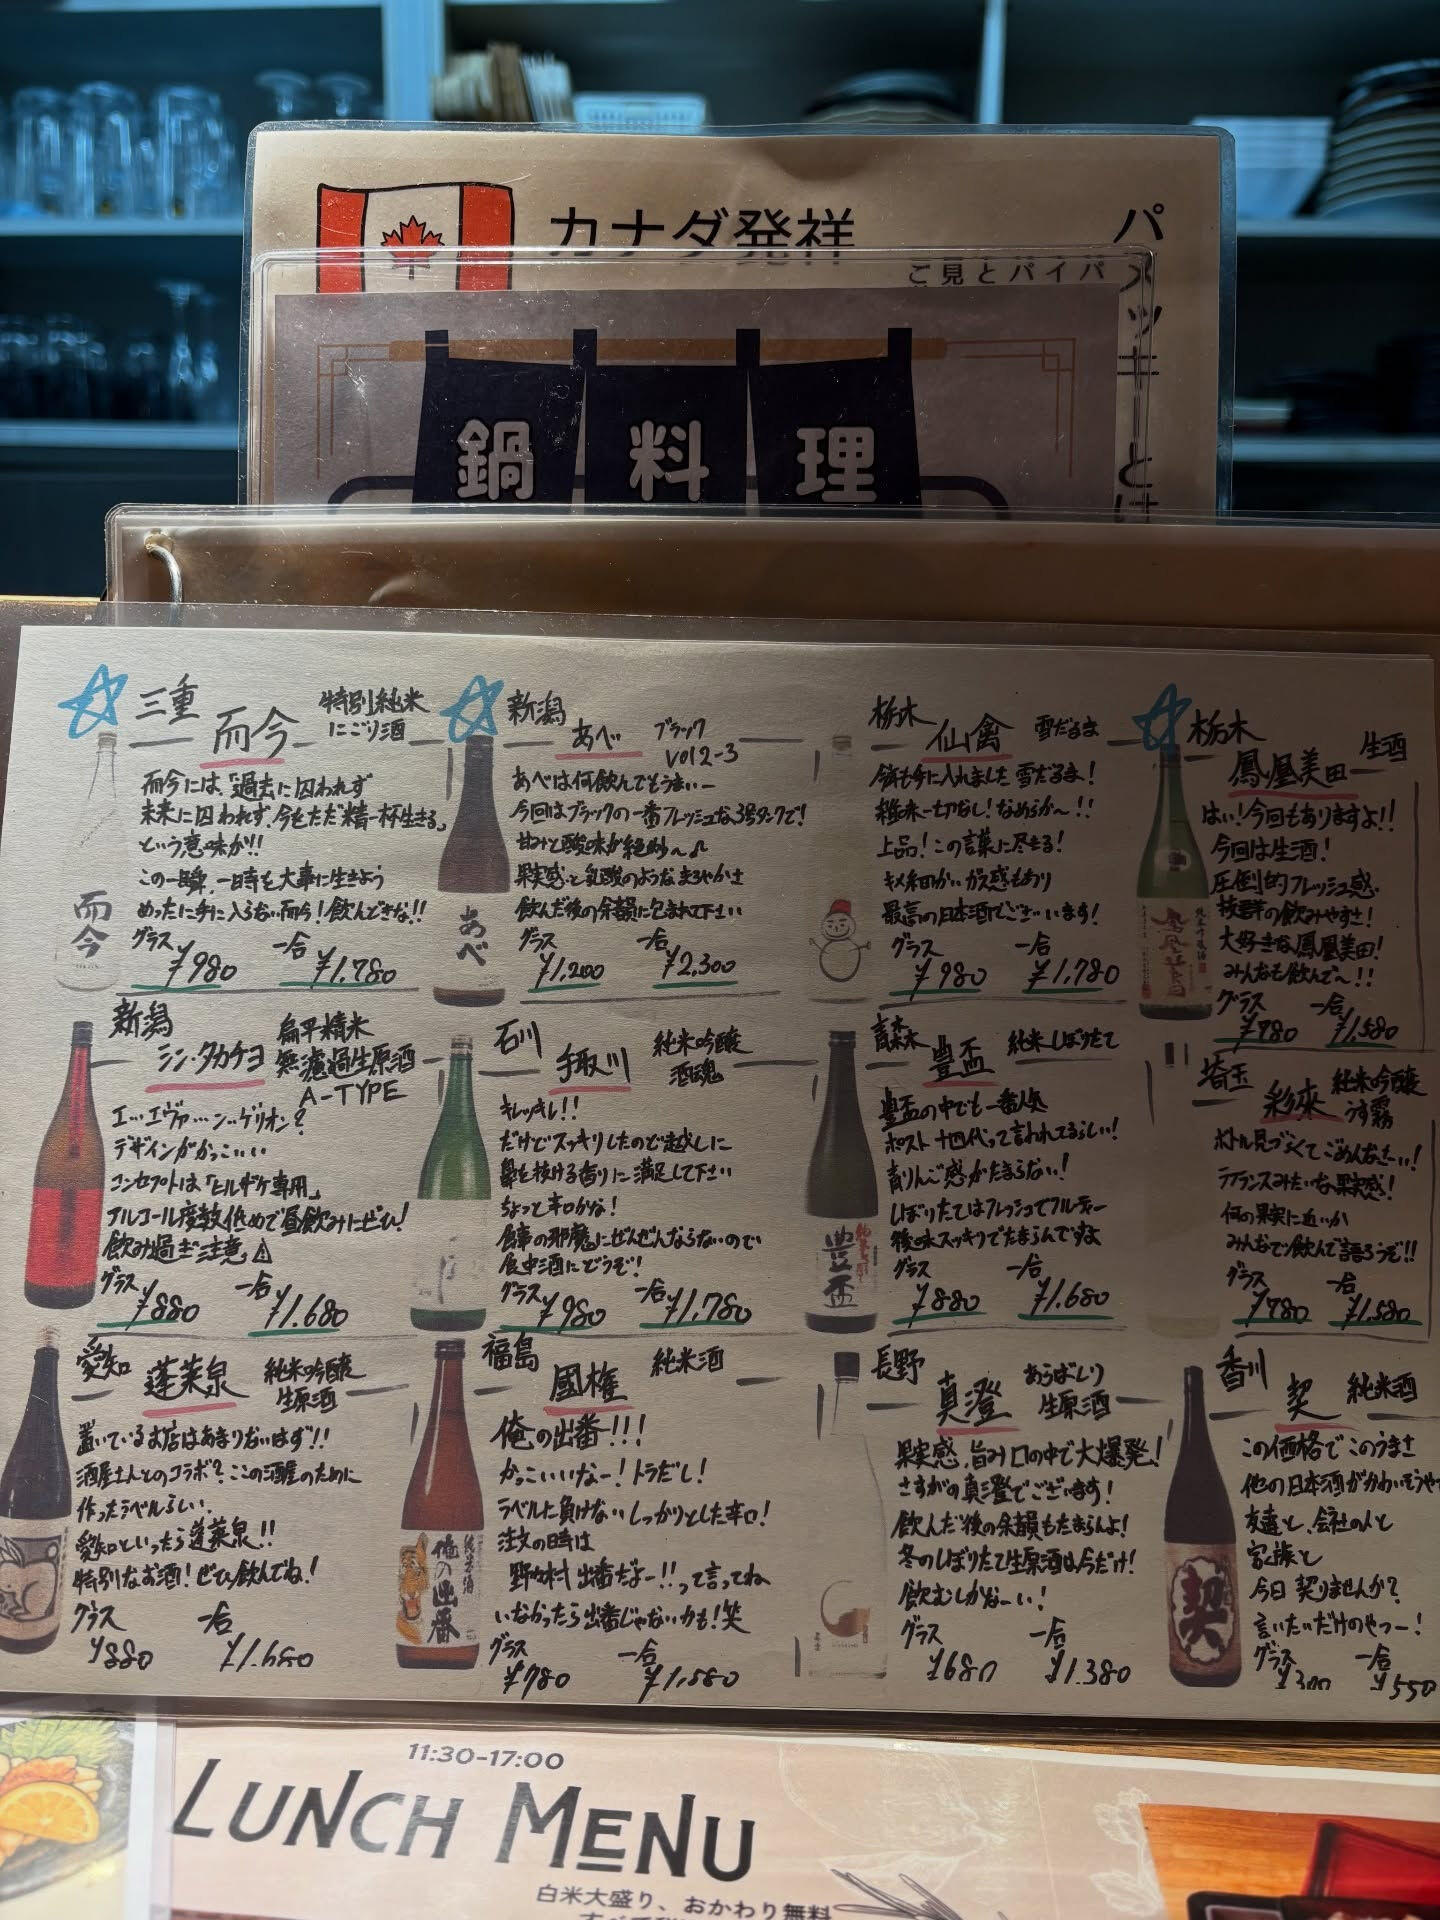 カナダ発祥
パスッキーとは
ご見とパイパ
鍋料理
三重
而今
特別純米
にごり酒
而今には、「過去に囚われず
未来に囚われず、今をただ精一杯生きる」
という意味が!!
この一瞬、一日時を大事に生きよう
めったに手に入らない而今!飲んできな!!
グラス ¥980
一合 ¥1,780
而今
新潟
あべ
ブラック
Vol2-3
あべは何飲んでもうまいー
今回はブラックの一番フレッシュな3号タンクで!
甘みと酸味が絶妙〜♫
果実感と乳酸のようなまろやかさ
飲んだ後の余韻に包まれて下さい
グラス ¥1,200
一合 ¥2,300
あべ
栃木
仙禽
雪だるま
今年も手に入れました雪だるま!
雑味一切なし!なめらか〜!!
上品!この言葉に尽きる!
キメ細かいガス感もあり
最高の日本酒でございます!
グラス ¥980
一合 ¥1,780
栃木
鳳凰美田
生酒
はい!今回もありますよ!!
今回は生酒!
圧倒的フレッシュ感
抜群の飲みやすさ!
大好きな鳳凰美田!
みんなも飲んで〜!!
グラス ¥780
一合 ¥1,580
新潟
シン・タカチヨ
扁平精米
無濾過生原酒
A-TYPE
エ…エヴァ…ン…ゲリオン?
デザインがかっこいい
コンセプトは「ヒルザケ専用」
アルコール度数低めで昼飲みにぜひ!
飲み過ぎ注意⚠
グラス ¥880
一合 ¥1,680
石川
手取川
純米吟醸
酒魂
キレッキレ!!
だけどスッキリしたのど越しに
鼻を抜ける香りに満足して下さい
ちょっと辛口かな!
食事の邪魔にぜんぜんならないので
食中酒にどうぞ!
グラス ¥980
一合 ¥1,780
青森
豊盃
純米しぼりたて
豊盃の中でも一番人気
ポスト十四代って言われてるらしい!
青りんご感がたまらない!
しぼりたてはフレッシュでフルーティー
後味スッキリでたまらんですよ
グラス ¥880
一合 ¥1,680
豊盃
埼玉
彩來
純米吟醸
うす霧
ボトル見づらくてごめんなさーい!
ラフランスみたいな果実感!
何の果実に近いか
みんなで飲んで語ろうぞ!!
グラス ¥780
一合 ¥1,580
愛知
蓬莱泉
純米吟醸
生原酒
置いているお店はあまりないはず!!
酒屋さんとのコラボ?ここの酒屋のために
作ったラベルらしい。
愛知といったら蓬莱泉!!
特別なお酒!ぜひ飲んでね!
グラス ¥880
一合 ¥1,680
福島
國権
純米酒
俺の出番!!!
かっこいいなー!トラだし!
ラベルに負けないしっかりとした辛口!
注文の時は
野々村出番だよー!!って言ってね
いなかったら出番じゃないかも!笑
グラス ¥780
一合 ¥1,580
俺の出番
純米酒
長野
真澄
あらばしり
生原酒
果実感、旨み口の中で大爆発!
さすがの真澄でございます!
飲んだ後の余韻もたまらんよ!
冬のしぼりたて生原酒は今だけ!
飲むしかなーい!
グラス ¥680
一合 ¥1,380
香川
契
純米酒
この価格でこのうまさ
他の日本酒がかわいそうや
友達と、会社の人と
家族と
今日 契りませんか?
言いたいだけのやつー!
グラス ¥300
一合 ¥550
契
11:30-17:00
LUNCH MENU
白米大盛り、おかわり無料